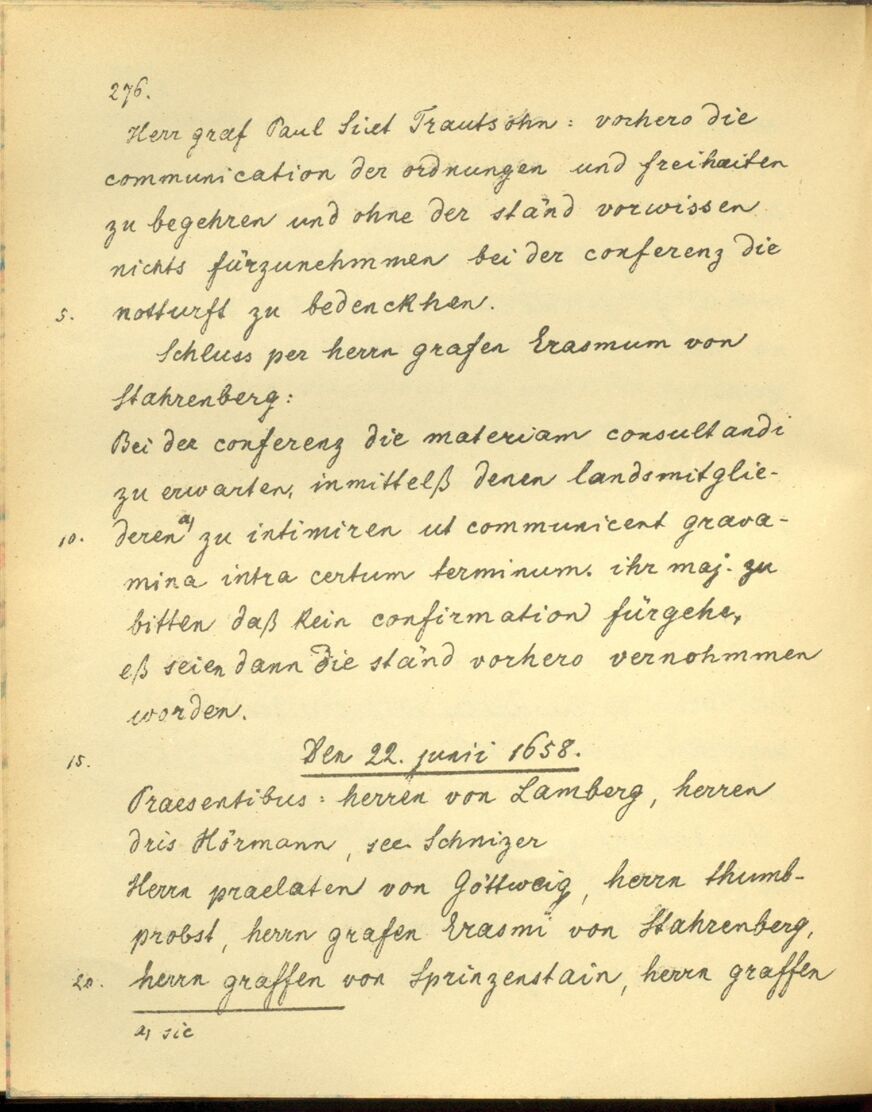 276.
Herr graf Paul Sixt Trautsohn: vorhero die
communication der ordnungen und freihaiten
zu begehren und ohne der ständ vorwissen
nichts fürzunehmmen bei der conferenz die
5. notturft zu bedenckhen.
Schluss per herrn grafen Erasmum von
Stahrenberg:
Bei der conferenz die materiam consultandi
zu erwarten, inmittelß denen landsmitglie-
10. deren a) zu intimiren ut communicent grava-
mina intra certum terminum. ihr maj. zu
bitten daß kein confirmation fürgehe,
eß seien dann die ständ vorhero vernohmmen
worden.
15. Den 22. junii 1658.
Praesentibus: herren von Lamberg, herren
dris Hörmann, sec. Schnizer
Herrn praelaten von Göttweig, herrn thumb-
probst, herrn grafen Erasmi von Stahrenberg,
20. herrn graffen von Sprinzenstain, herrn graffen
a) sic